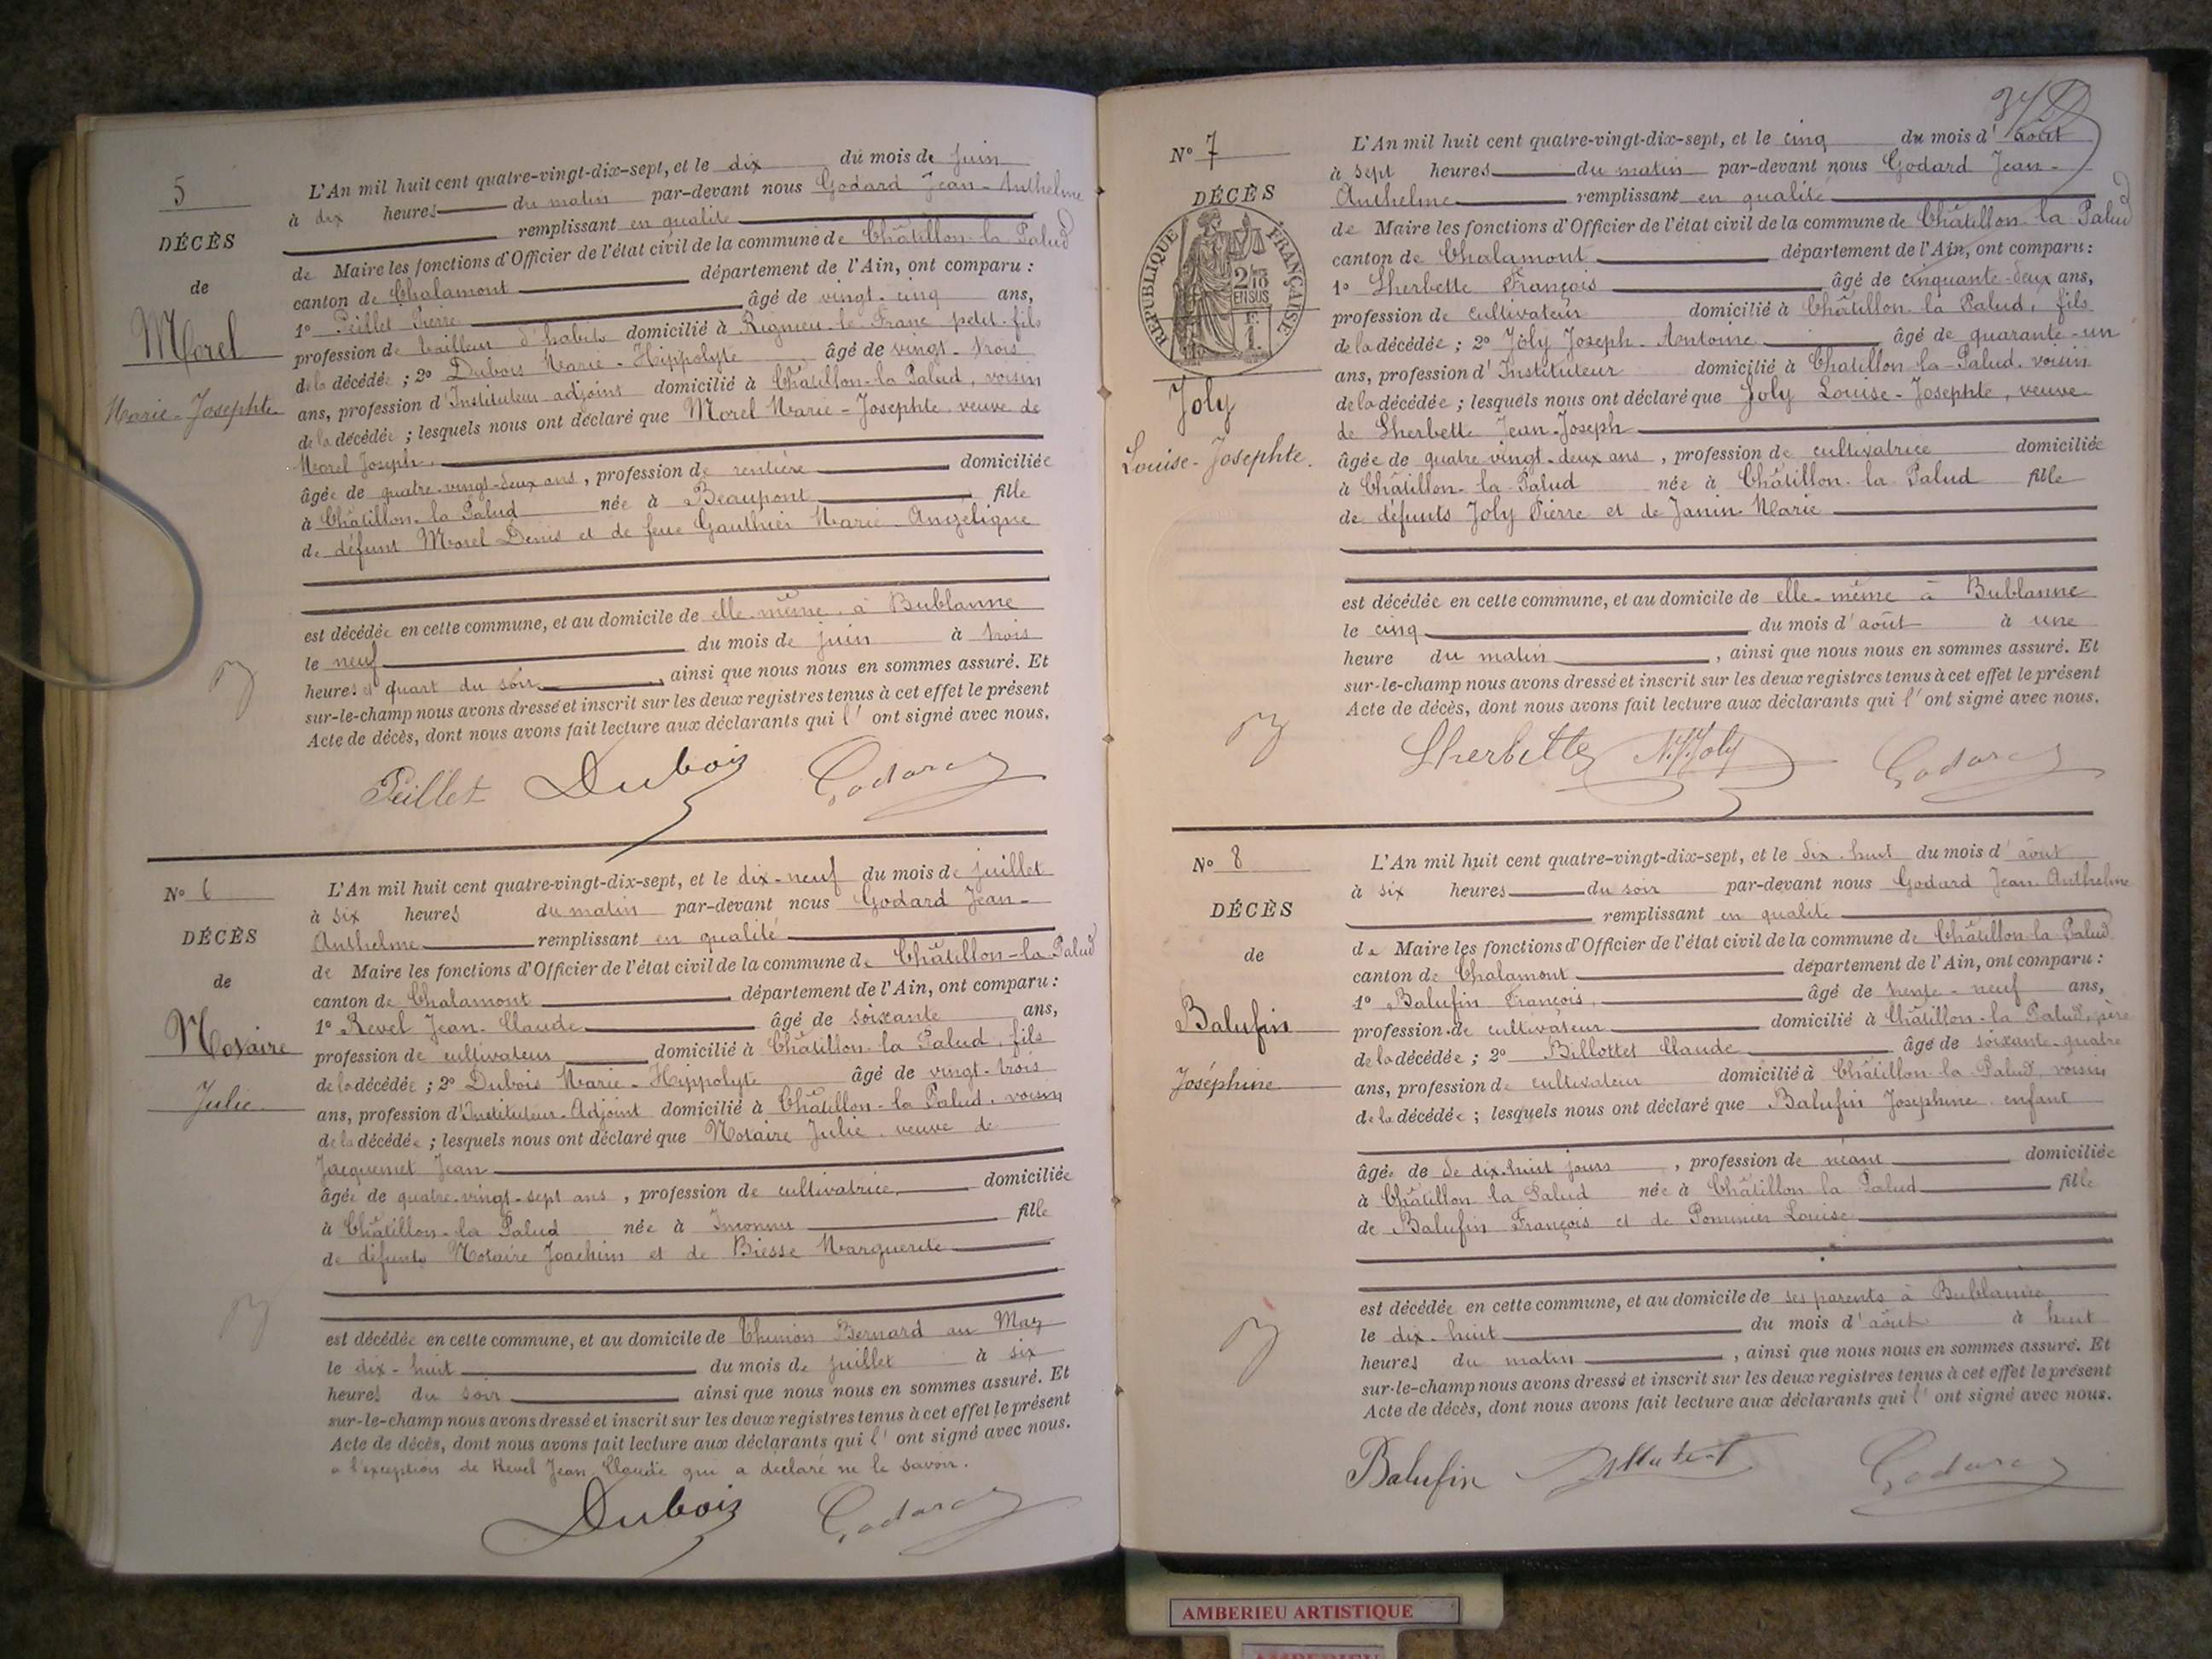 5
DÉCÈS
de
Morel
Marie-Josephte
L'An mil huit cent quatre-vingt-dix-sept, et le dix du mois de juin
à dix heures du matin par-devant nous Godard Jean-Anthelme
remplissant en qualité
de Maire les fonctions d'Officier de l'état civil de la commune de Châtillon-la-Palud
canton de Chalamont département de l'Ain, ont comparu :
1º Peillet Pierre âgé de vingt-cinq ans,
profession de tailleur d'habits domicilié à Rignieu-le-Franc petit-fils
de la décédée ; 2º Dubois Marie-Hippolyte âgé de vingt-trois
ans, profession d'Instituteur adjoint domicilié à Châtillon-la-Palud, voisin
de la décédée ; lesquels nous ont déclaré que Morel Marie-Josephte, veuve de
Morel Joseph,
âgée de quatre-vingt-deux ans, profession de rentière domiciliée
à Châtillon-la-Palud née à Beaupont fille
de défunt Morel Denis et de feue Gauthier Marie-Angélique
est décédée en cette commune, et au domicile de elle-même à Bublanne
le neuf du mois de juin à trois
heures et quart du soir, ainsi que nous nous en sommes assuré. Et
sur-le-champ nous avons dressé et inscrit sur les deux registres tenus à cet effet le présent
Acte de décès, dont nous avons fait lecture aux déclarants qui l' ont signé avec nous.
Peillet Dubois Godard
Nº 6
DÉCÈS
de
Notaire
Julie
L'An mil huit cent quatre-vingt-dix-sept, et le dix-neuf du mois de juillet
à six heures du matin par-devant nous Godard Jean-
Anthelme remplissant en qualité
de Maire les fonctions d'Officier de l'état civil de la commune de Châtillon-la-Palud
canton de Chalamont département de l'Ain, ont comparu :
1º Revel Jean-Claude âgé de soixante ans,
profession de cultivateur domicilié à Châtillon-la-Palud, fils
de la décédée ; 2º Dubois Marie-Hippolyte âgé de vingt-trois
ans, profession d'Instituteur-Adjoint domicilié à Châtillon-la-Palud, voisin
de la décédée ; lesquels nous ont déclaré que Notaire Julie, veuve de
Jacquemet Jean
âgée de quatre-vingt-sept ans, profession de cultivatrice, domiciliée
à Châtillon-la-Palud née à Inconnu fille
de défunts Notaire Joachim et de Biesse Marguerite
est décédée en cette commune, et au domicile de Thunion Bernard au May
le dix-huit du mois de juillet à six
heures du soir ainsi que nous nous en sommes assuré. Et
sur-le-champ nous avons dressé et inscrit sur les deux registres tenus à cet effet le présent
Acte de décès, dont nous avons fait lecture aux déclarants qui l' ont signé avec nous.
à l'exception de Revel Jean Claude qui a déclaré ne le savoir.
Dubois Godard
Nº 7
DÉCÈS
RÉPUBLIQUE FRANÇAISE
2/10 EN SUS
Joly
Louise-Josephte.
L'An mil huit cent quatre-vingt-dix-sept, et le cinq du mois d' août
à sept heures du matin par-devant nous Godard Jean-
Anthelme remplissant en qualité
de Maire les fonctions d'Officier de l'état civil de la commune de Châtillon-la-Palud
canton de Chalamont département de l'Ain, ont comparu :
1º Lherbette François âgé de cinquante-deux ans,
profession de cultivateur domicilié à Châtillon-la-Palud, fils
de la décédée ; 2º Joly Joseph-Antoine âgé de quarante-un
ans, profession d' Instituteur domicilié à Chatillon-la-Palud, voisin
de la décédée ; lesquels nous ont déclaré que Joly Louise-Josephte, veuve
de Lherbette Jean-Joseph
âgée de quatre vingt-deux ans, profession de cultivatrice domiciliée
à Châtillon-la-Palud née à Châtillon-la-Palud fille
de défunts Joly Pierre et de Janin Marie
est décédée en cette commune, et au domicile de elle-même à Bublanne
le cinq du mois d'août à une
heure du matin, ainsi que nous nous en sommes assuré. Et
sur-le-champ nous avons dressé et inscrit sur les deux registres tenus à cet effet le présent
Acte de décès, dont nous avons fait lecture aux déclarants qui l' ont signé avec nous.
Lherbette Joly Godard
Nº 8
DÉCÈS
de
Balufin
Joséphine
L'An mil huit cent quatre-vingt-dix-sept, et le dix-huit du mois d' août
à six heures du soir par-devant nous Godard Jean-Anthelme
remplissant en qualité
de Maire les fonctions d'Officier de l'état civil de la commune de Châtillon-la-Palud
canton de Chalamont département de l'Ain, ont comparu :
1º Balufin François, âgé de trente-neuf ans,
profession de cultivateur domicilié à Châtillon-la-Palud, père
de la décédée ; 2º Billottet Claude âgé de soixante-quatre
ans, profession de cultivateur domicilié à Châtillon-la-Palud, voisin
de la décédée ; lesquels nous ont déclaré que Balufin Josephine enfant
âgée de de dix-huit jours, profession de néant domiciliée
à Châtillon la Palud née à Châtillon la Palud fille
de Balufin François et de Pommier Louise
est décédée en cette commune, et au domicile de ses parents à Bublanne
le dix-huit du mois d'août à huit
heures du matin, ainsi que nous nous en sommes assuré. Et
sur-le-champ nous avons dressé et inscrit sur les deux registres tenus à cet effet le présent
Acte de décès, dont nous avons fait lecture aux déclarants qui l' ont signé avec nous.
Balufin Billottet Godard
AMBERIEU ARTISTIQUE
AMBERIEU